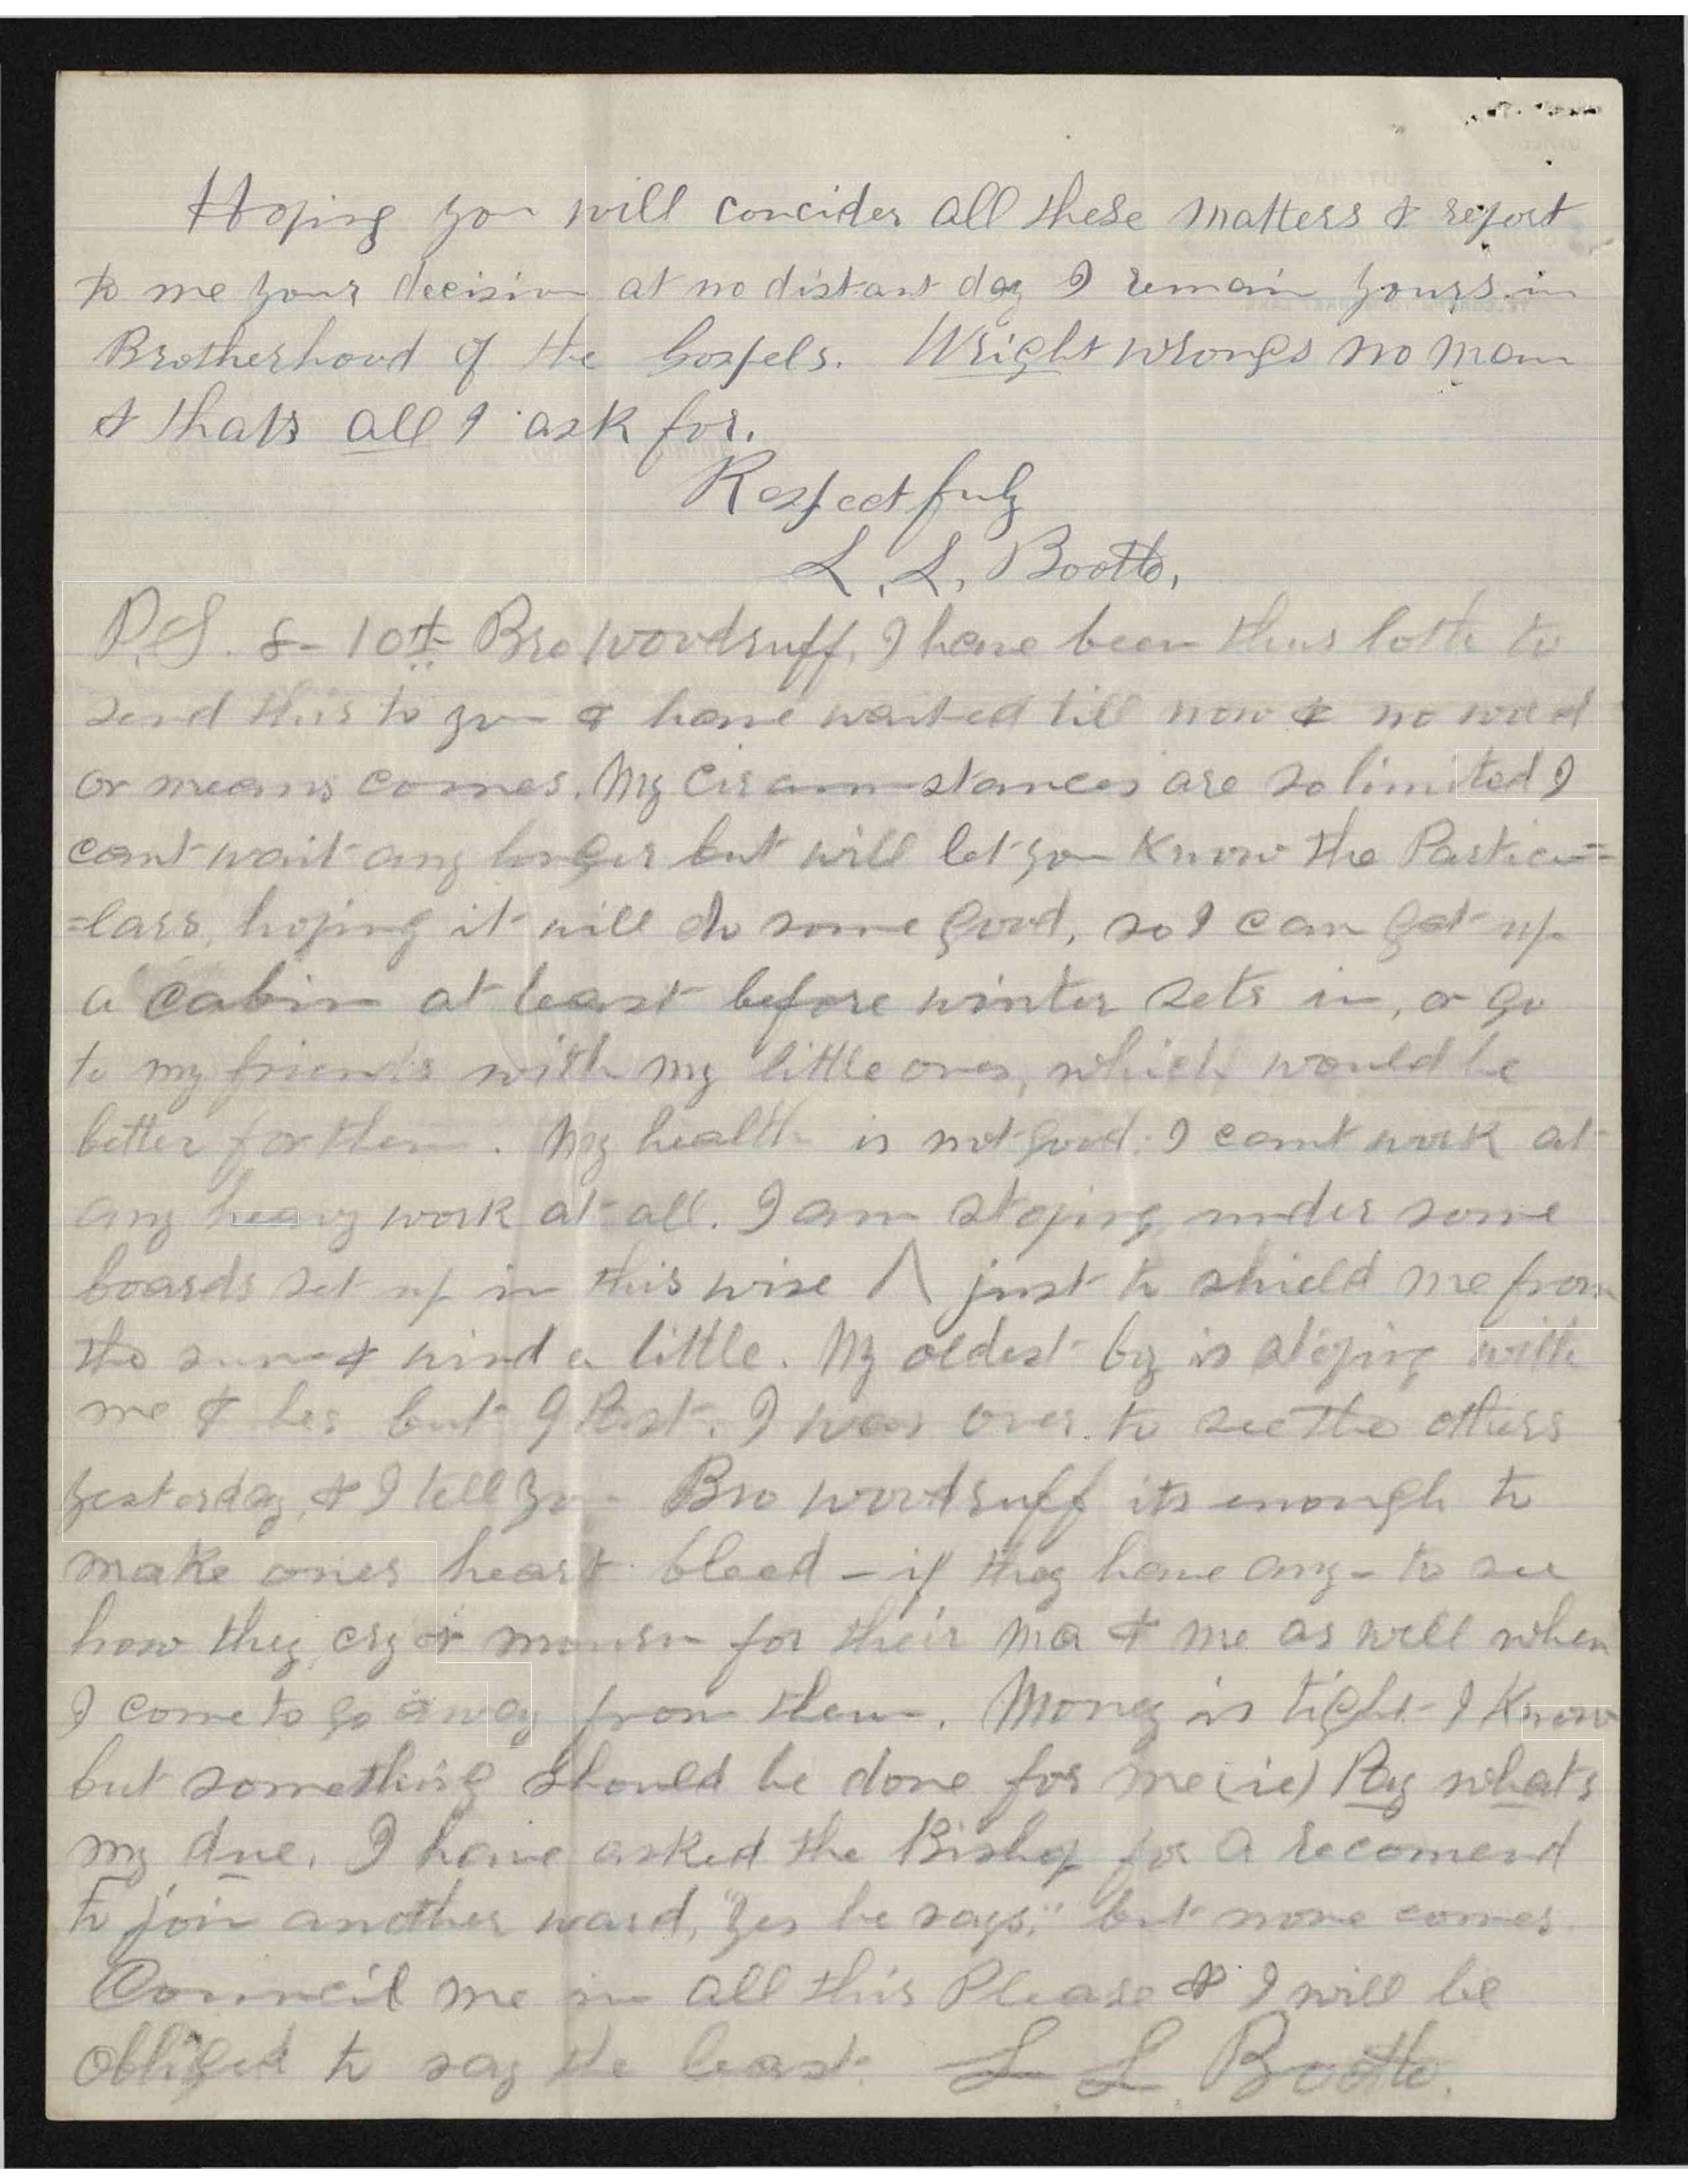 Hoping you will concider all these matters & report
to me your decision at no distant day I remain yours in
Brotherhood of the Gospels. Wright wrongs no man
& thats all I ask for.
Respectfuly
L. L. Booth,
P.S. 8- 10th Bro Woodruff, I have been thus loth to
send this to you & have waited till now & no word
or means comes. My Circumstances are so limited I
cant wait any longer but will let you Know the Particu=
=lars, hoping it will do some good, so I can get up
a cabin at least before winter sets in, or go
to my friends with my little ones, which would be
better for them. My health is not good. I cant work at
any heavy work at all. I am stoping under some
boards set up in this wise Λ just to shield me from
the sun & wind a little. My oldest boy is stoping with
me & hes but 9 Past. I was over to see the others
yesterday, & I tell you Bro Woodruff its enough to
make ones heart bleed – if they have any – to see
how they cry or mourn for their ma & me as well when
I come to go away from them. Money is tight I Know
but something should be done for me (ie) Pay whats
my due. I have asked the Bishop for a recomend
to join another ward, "Yes he says," but none comes
Council me in all this Please & I will be
obliged to say the least. L L Booth.